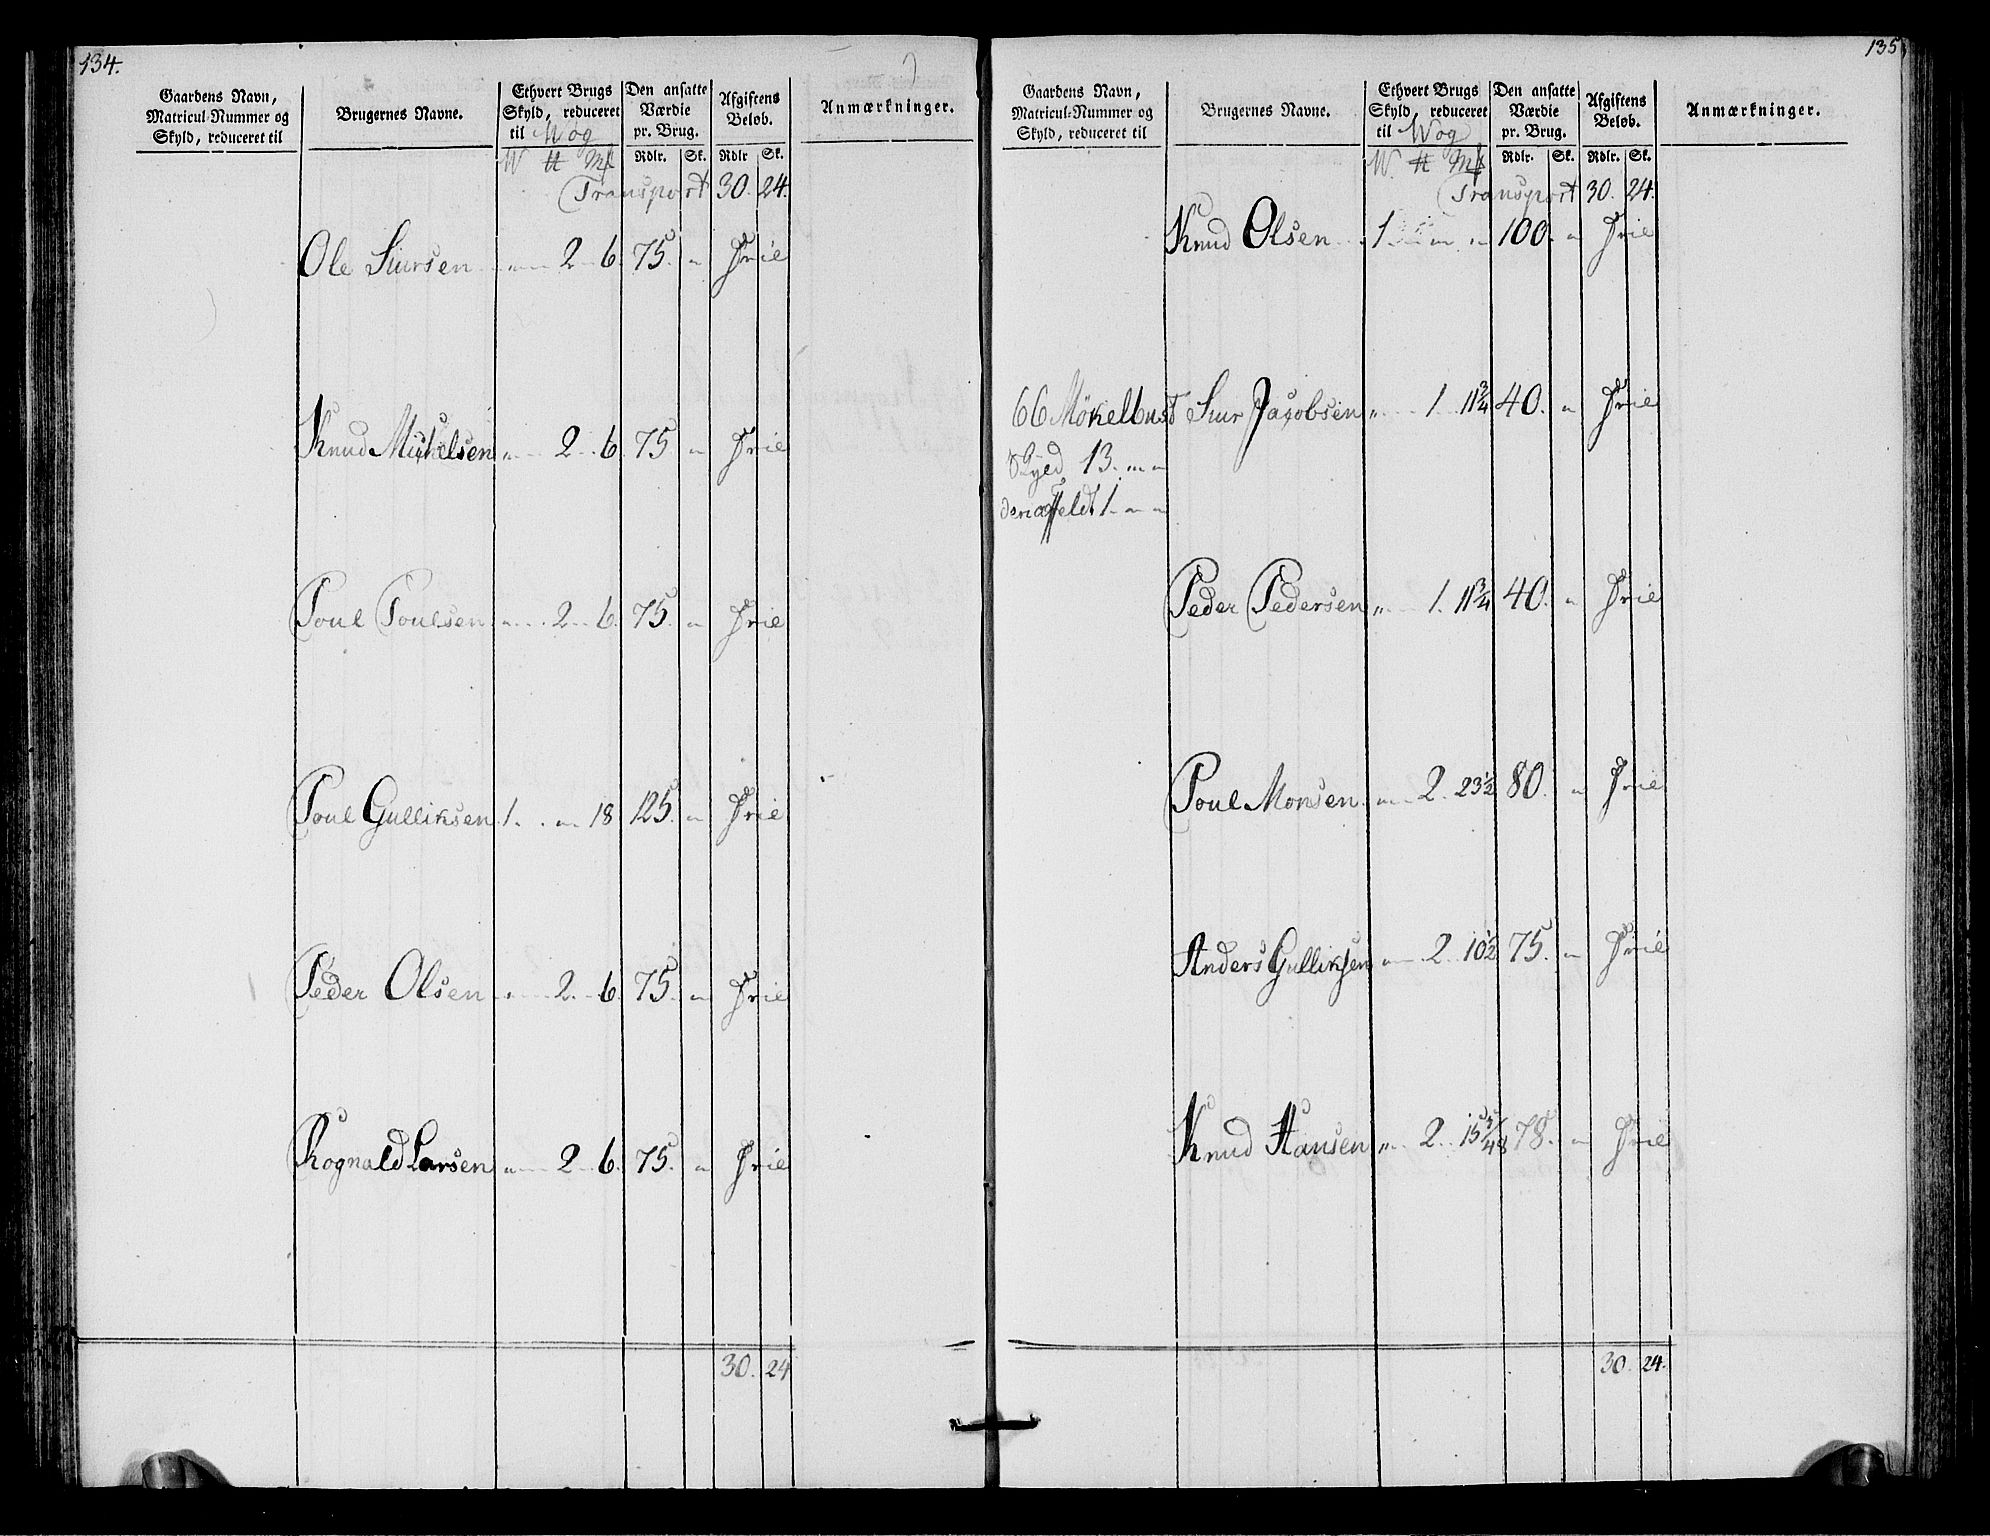 134.
Gaardens Navn, Matricul-Nummer og Skyld, reduceret til
Brugernes Navne.
Ethvert Brugs Skyld, reduceret til Wog
Den ansatte Værdie pr. Brug.
Afgiftens Beløb.
Anmærkninger.
W ℔ Mk Rdlr. Sk. Rdlr Sk.
Transport 30. 24.
Ole Siursen „ 2 6. 75. „ Frie
Knud Michelsen „ 2 6. 75 „ Frie
Poul Poulsen „ 2 6. 75. „ Frie
Poul Gulliksen 1. „ 18 125. „ Frie
Peder Olsen „ 2. 6. 75. „ Frie
Rognald Larsen „ 2 6. 75. „ Frie
30. 24
135
Gaardens Navn, Matricul-Nummer og Skyld, reduceret til
Brugernes Navne.
Ethvert Brugs Skyld, reduceret til Wog
Den ansatte Værdie pr. Brug.
Afgiftens Beløb.
Anmærkninger.
W. ℔ Mk Rdlr. Sk. Rdlr. Sk.
Transport 30. 24.
Knud Olsen 1 „ „ 100. „ Frie
66 Mökelbust Siur Jacobsen „ 1 11 3/4 40. „ Frie
Skyld 13. „ „
1. „ „
Peder Pedersen „ 1. 11 3/4 40. „ Frie
Poul Monsen „ 2. 23 1/2 80. „ Frie
Anders Gulliksen „ 2. 10 1/2 75. „ Frie
Knud Hansen „ 2. 15 5/48 78. „ Frie
30. 24.